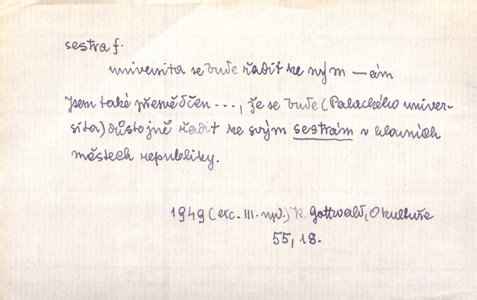 sestra f.
universita se bude řadit ke svým — ám
Jsem také přesvědčen ..., že se bude (Palackého univer-
sita) důstojně řadit ke svým sestrám v hlavních
městech republiky.
1949 (exc. III. np.) K. Gottwald, O kultuře
55, 18.